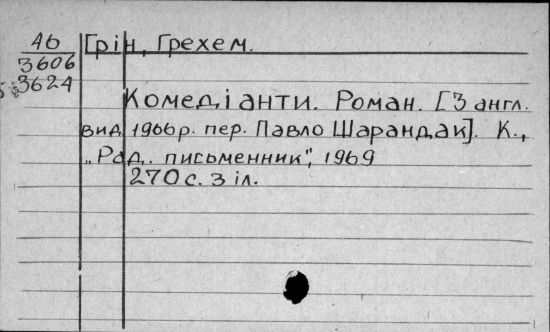 Аб Грін, Грехем.
3606
3624
Комедіанти. Роман. [З англ.
вид. 1966р. пер. Павло Шарандак]. К.,
„Рад. письменник", 1969
270 с. з іл.